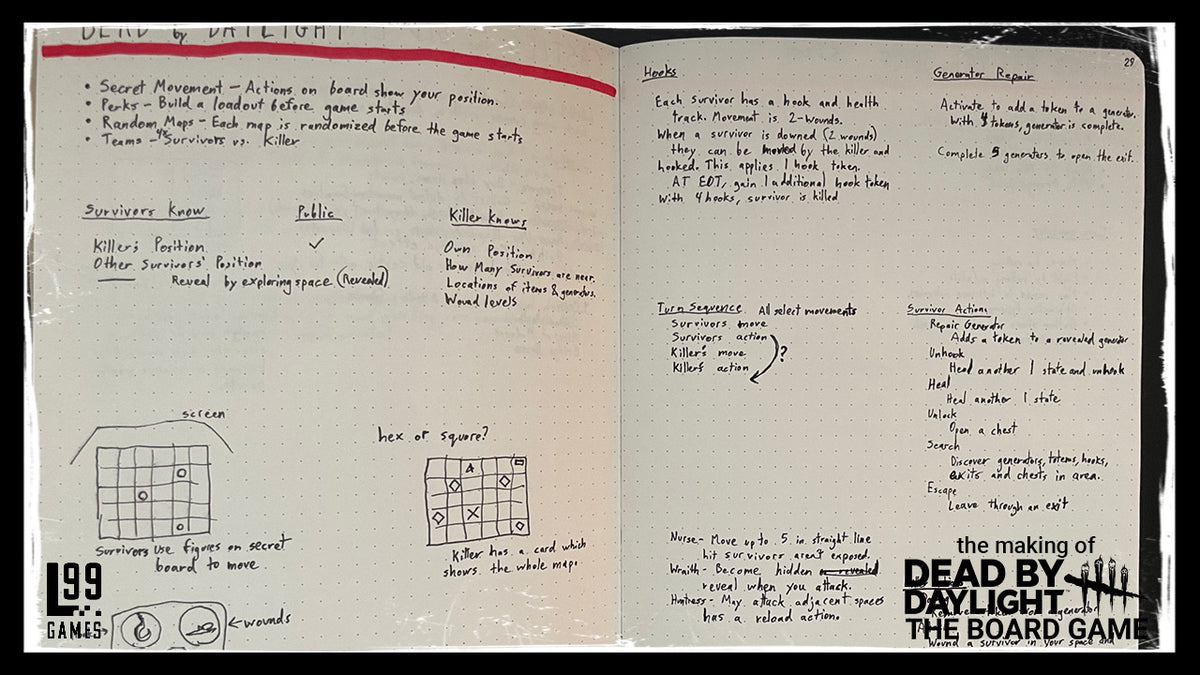 DEAD by DAYLIGHT
• Secret Movement – Actions on board show your position.
• Perks – Build a loadout before game starts
• Random Maps – Each map is randomized before the game starts
• Teams – 4x Survivors vs. Killer
Survivors Know
Killer's Position
Other Survivors' Position
Reveal by exploring space (Revealed)
Public
✓
Killer Knows
Own Position
How Many Survivors are near.
Locations of items & generators.
Wound levels
screen
Survivors use figures on secret
board to move
hex or square?
Killer has a card which
shows the whole map.
←wounds
29
Hooks
Each survivor has a hook and health
track. Movement is 2-Wounds.
When a survivor is downed (2 wounds)
they can be moved by the killer and
hooked. This applies 1 hook token.
AT EOT, gain 1 additional hook token
With 4 hooks, survivor is killed
Generator Repair
Activate to add a token to a generator.
With 4 tokens, generator is complete.
Complete 5 generators to open the exit.
Turn Sequence All select movements
Survivors move
Survivors action
Killer's move
Killer's action
?
Survivor Actions
Repair Generator
Adds a token to a revealed generator
Unhook
Heal another 1 state and unhook
Heal
Heal another 1 state
Unlock
Open a chest
Search
Discover generators, totems, hooks,
exits and chests in area.
Escape
Leave through an exit
Nurse – Move up to 5 in straight line
hit survivors aren't exposed.
Wraith – Become hidden or revealed.
reveal when you attack.
Huntress – May attack adjacent spaces
has a reload action.
Remove token generator
Wound a survivor in your space and
L99
GAMES
the making of
DEAD BY
DAYLIGHT
THE BOARD GAME